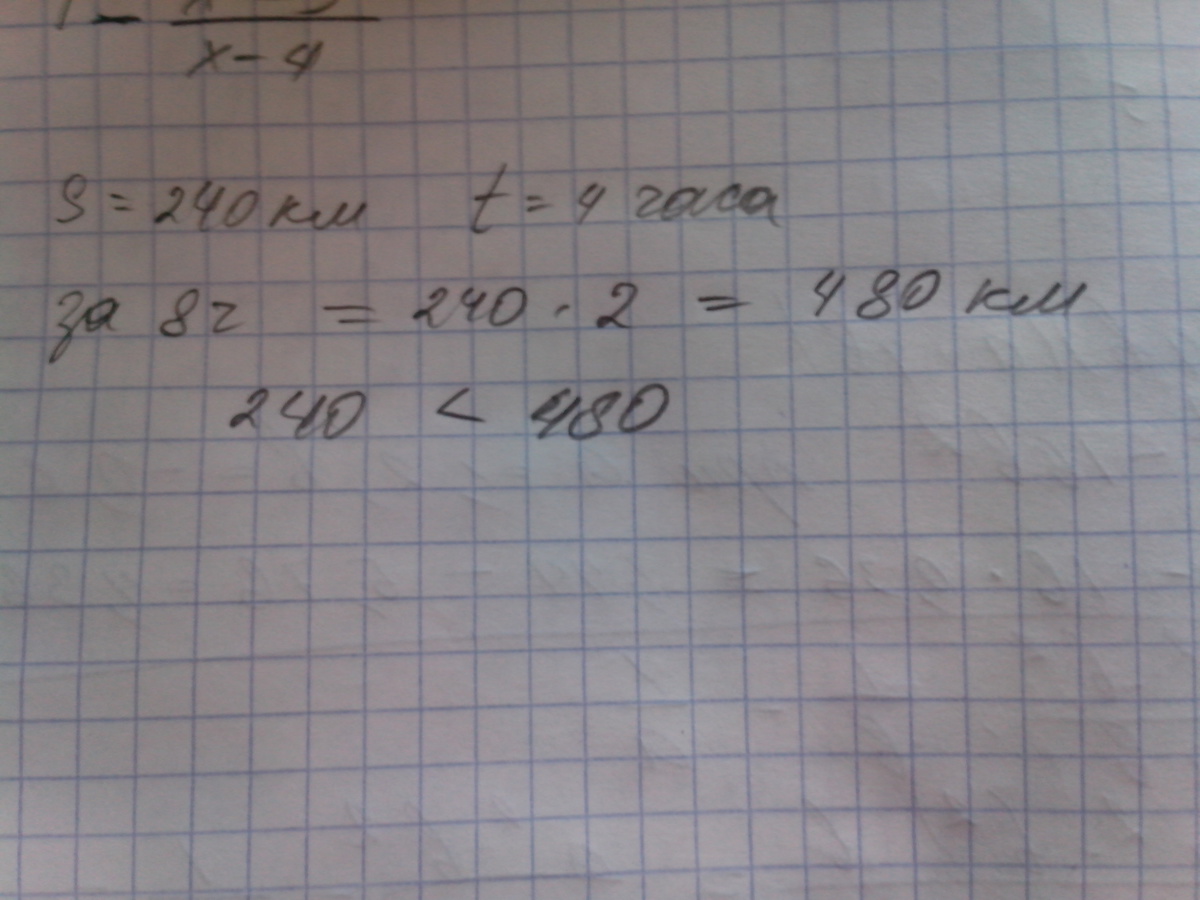 x-4
S = 240 км t = 4 часа
за 8г = 240 · 2 = 480 км
240 < 480